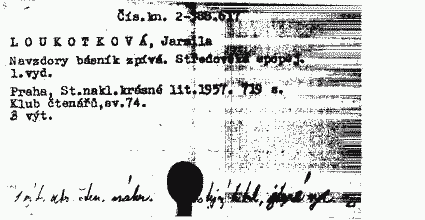 Čís.kn. 2-88.617
LOUKOTKOVÁ, Jarmila
Navzdory básník zpívá. Středověká epopej.
1.vyd.
Praha, St.nakl.krásné lit.1957. 719 s.
Klub čtenářů,sv.74.
3 výt.